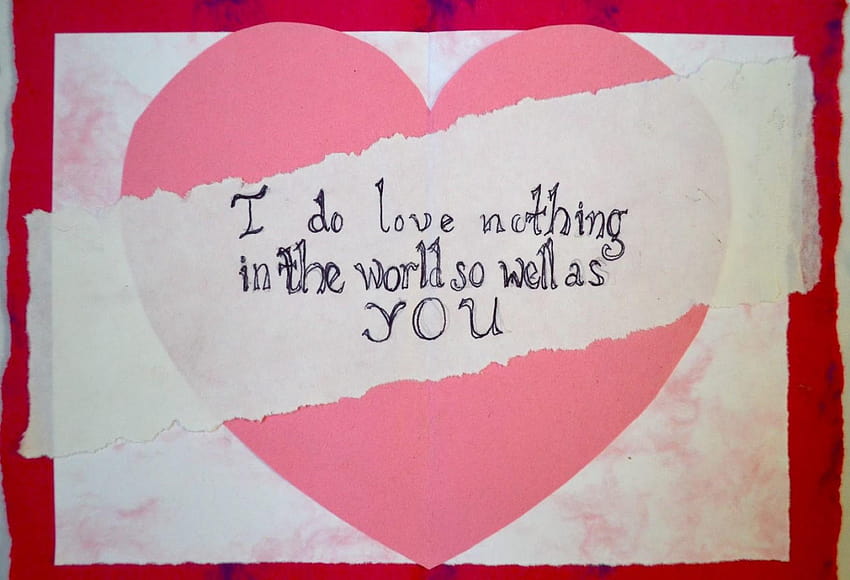 I do love nothing
in the world so well as
YOU